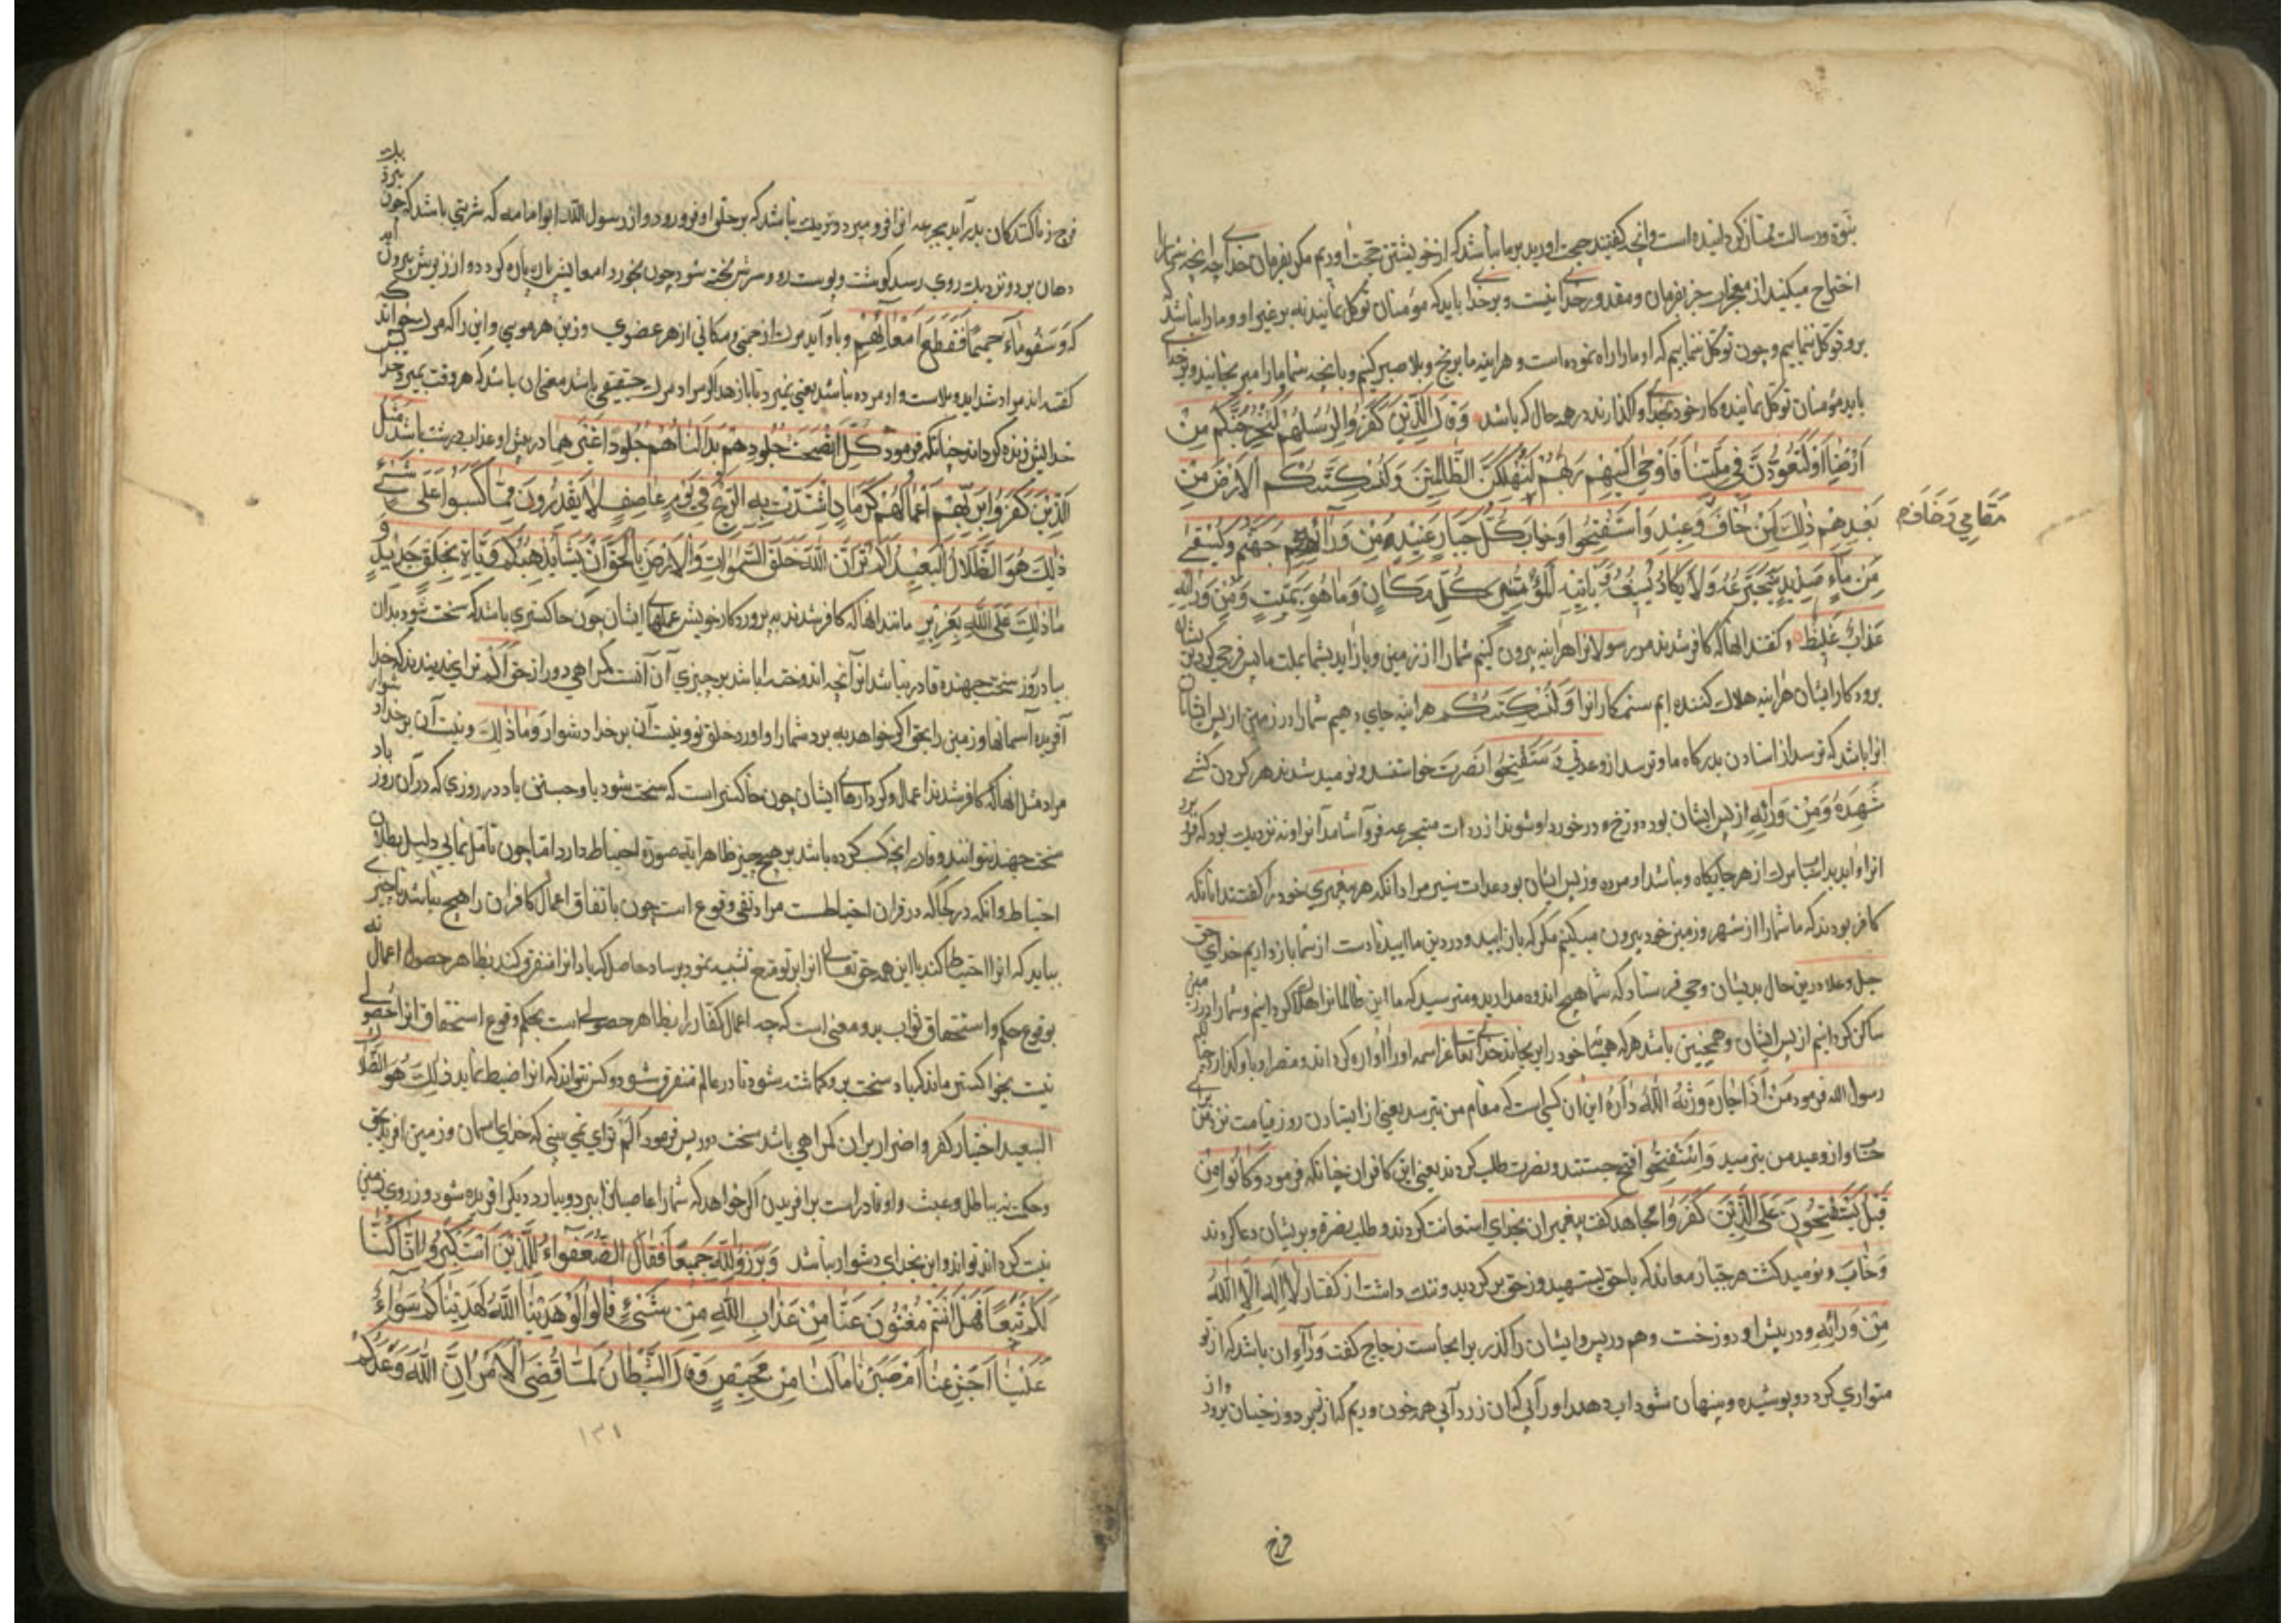 نبوة ورسالت ممتاز کردانیده است وانچه کفتید حجت اورید بر ما نباشد که از خویشتن حجت اوریم مکر بفرمان خدای چه انچه شما
اختراح میکنید از معجزات جز بفرمان ومقدور خدا نیست وبر خدا باید که مؤمنان توکل نمایند نه بر غیر او وما را نباشد که
برو توکل ننماییم وچون توکل ننماییم که او ما را راه نموده است وهراینه ما برنج وبلا صبر کنیم وبانچه شما ما را میرنجانید وبر خدای
باید مؤمنان توکل نمایند وکار خود بخدا واکذارند در همه حال که باشد وَقَالَ الَّذِينَ كَفَرُوا لِرُسُلِهِمْ لَنُخْرِجَنَّكُمْ مِنْ
أَرْضِنَا أَوْ لَتَعُودُنَّ فِي مِلَّتِنَا فَأَوْحَى إِلَيْهِمْ رَبُّهُمْ لَنُهْلِكَنَّ الظَّالِمِينَ وَلَنُسْكِنَنَّكُمُ الْأَرْضَ مِنْ
بَعْدِهِمْ ذَلِكَ لِمَنْ خَافَ وَعِيدِ وَاسْتَفْتَحُوا وَخَابَ كُلُّ جَبَّارٍ عَنِيدٍ مِنْ وَرَائِهِ جَهَنَّمُ وَيُسْقَى
مَقَامِي وَخَافَ
مِنْ مَاءٍ صَدِيدٍ يَتَجَرَّعُهُ وَلَا يَكَادُ يُسِيغُهُ وَيَأْتِيهِ الْمَوْتُ مِنْ كُلِّ مَكَانٍ وَمَا هُوَ بِمَيِّتٍ وَمِنْ وَرَائِهِ
عَذَابٌ غَلِيظٌ وکفتند انها که کافر شدند مر رسولانرا هراینه بیرون کنیم شما را از زمین ویا باز اید بملت ما پس وحی کرد بدیشان
برودکار ایشان هراینه هلاک کننده ایم ستمکارانرا وَلَنُسْكِنَنَّكُمْ هراینه جای دهیم شما را در زمین از پس ایشان
انرا باشد که ترسد از استادن بدرکاه ما وترسد از وعدتی وَاسْتَفْتَحُوا نصرت خواستند ونومید شدند هر کردن کشی
از پس ایشان بود دوزخ
انرا واید بدو اسباب مرک از هر جایکاه ونباشد او مرده وز پس ایشان بود عذاب مراد انکه هر پیغمبری خود را کفتند انانکه
کافر بودند که ما شما را از شهر وزمین خود بیرون میکنیم مکر که باز ایید ودر دین ما ایید تا دست از شما باز داریم خدای حق
جل وعلا درین حال بدیشان وحی فرستاد که شما هیچ اندوه مدارید ومترسید که ما این ظالمانرا هلاک کردانیم وشما را در زمین
ساکن کردانیم از پس ایشان وهمچنین باشد هر که همسایه خود را برنجاند خدای تعالی عز اسمه او را اواره کرداند
رسول الله فرمود مَنْ أَذَى جَارَهُ وَرَّثَهُ اللَّهُ دَارَهُ این ان کسی است که مقام من بترسد یعنی از ایستادن روز قیامت نزد من
واز وعید من بترسید وَاسْتَفْتَحُوا فتح جستند ونصرت طلب کردند یعنی این کافران چنانکه فرمود وَكَانُوا مِنْ
قَبْلُ يَسْتَفْتِحُونَ عَلَى الَّذِينَ كَفَرُوا مجاهد کفت پیغمبران بخدای استعانت کردند وطلب نصرة وبریشان دعا کردند
وَخَابَ ونومید کشت هر جبار معاند که باحق بستهید وز حق برکردید وننک داشت از کفتار لَا إِلَهَ إِلَّا اللَّهُ
مِنْ وَرَائِهِ ودر پیش او دوزخست وهم در پس وایشان را کذر بر انجاست زجاج کفت وَرَاءِ ان باشد که از تو
متواری کردد وپوشیده وپنهان شود اب دهد او را ابی کان زرداب همه خون وریم که از تن دوزخیان برود واز
فرج
فرج زناکنندکان بدر آید بجرعه انرا فرو میبرد ونزدیک نباشد که بر حلق او فرو رود واز رسول الله ابو امامه که شربتی باشد که چون نزدیک
دهان برد ونزدیک روی رسد کوشت وپوست رو وسرش پخته شود چون بخورد امعایش پاره پاره کردد واز زیرش بیرون آید
که وَسُقُوا مَاءً حَمِيمًا فَقَطَّعَ أَمْعَاءَهُمْ وباو آید مرک از جمیع مکانی از هر عضوی وز بن هر موی واین را که مرک خواند
کفته اند مراد شداید وبلاست واو مرده نباشد یعنی نمیرد تا باز هد اکر مراد مرک حقیقی باشد معنی ان باشد که هر وقت بمیرد خدا
خدایش زنده کرداند چنانکه فرمود كُلَّمَا نَضِجَتْ جُلُودُهُمْ بَدَّلْنَاهُمْ جُلُودًا غَيْرَهَا در پیش او عذاب درشت باشد مَثَلُ
الَّذِينَ كَفَرُوا بِرَبِّهِمْ أَعْمَالُهُمْ كَرَمَادٍ اشْتَدَّتْ بِهِ الرِّيحُ فِي يَوْمٍ عَاصِفٍ لَا يَقْدِرُونَ مِمَّا كَسَبُوا عَلَى شَيْءٍ
ذَلِكَ هُوَ الضَّلَالُ الْبَعِيدُ أَلَمْ تَرَ أَنَّ اللَّهَ خَلَقَ السَّمَوَاتِ وَالْأَرْضَ بِالْحَقِّ إِنْ يَشَأْ يُذْهِبْكُمْ وَيَأْتِ بِخَلْقٍ جَدِيدٍ وَ
مَا ذَلِكَ عَلَى اللَّهِ بِعَزِيزٍ مانند انها که کافر شدند به پروردکار خویش عملهای ایشان چون خاکستری باشد که سخت شود بدان
باد در روز سخت جهنده قادر نباشد از آنچه اندوخته باشد بر چیزی آن آنست کمراهی دور از حق أَلَمْ تَرَ ای ندیدند که خدا
آفریده آسمانها وزمین را بحق اکر خواهد ببرد شما را واورد خلق نو ونیست آن بر خدا دشوار وَمَا ذَلِكَ ونیست آن بر خدا دشوار
مراد مثل انها که کافر شدند اعمال وکردارهای ایشان چون خاکستر است که سخت شود باو جستن باد در روزی که در آن روز باد
سخت جهد نتوانند وقادر بر انچه کسب کرده باشد بر هیچ چیز ظاهر آیه صورة احتیاط دارد اما چون تامل نمایی دلیل بطلان
احتیاط وانکه در هر کجا که در قران احتیاطست مراد نفی وقوع است چون باتفاق اعمال کافران را هیچ نباشد تا چیزی
بوقوع حکم واستحقاق ثواب برو معنی است که چه اعمال کفار را بظاهر حصولی است بحکم وقوع استحقاق انرا حصولی
نیست بجز خاکستر ماند که باد سخت برو کماشته شود تا در عالم متفرق شود وکس نتواند که انرا ضبط نماید ذَلِكَ هُوَ الضَّلَالُ
البعید اختیار کفر واضرار بران کمراهی باشد سخت دور پس فرمود أَلَمْ تَرَ ای نمی بینی که خدای اسمان وزمین افرید بحق
وحکمت نه بباطل وعبث واو قادر است بر افریدن اکر خواهد که شما را عاصیانرا ببرد وبیارد دیکر افریده شود وز روی زمین
نیست کرداند تواند واین بخدای دشوار نباشد وَبَرَزُوا لِلَّهِ جَمِيعًا فَقَالَ الضُّعَفَاءُ لِلَّذِينَ اسْتَكْبَرُوا إِنَّا كُنَّا
لَكُمْ تَبَعًا فَهَلْ أَنْتُمْ مُغْنُونَ عَنَّا مِنْ عَذَابِ اللَّهِ مِنْ شَيْءٍ قَالُوا لَوْ هَدَيْنَا اللَّهُ لَهَدَيْنَاكُمْ سَوَاءٌ
عَلَيْنَا أَجَزِعْنَا أَمْ صَبَرْنَا مَا لَنَا مِنْ مَحِيصٍ وَقَالَ الشَّيْطَانُ لَمَّا قُضِيَ الْأَمْرُ إِنَّ اللَّهَ وَعَدَكُمْ
١٣١